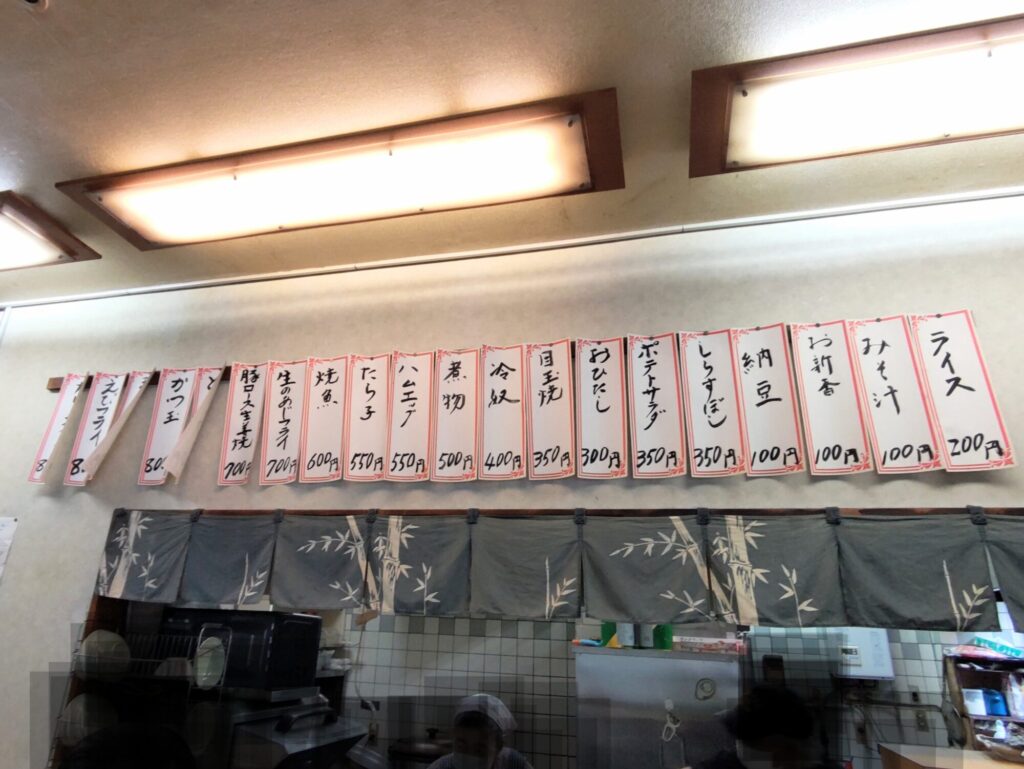 ライス 200円
みそ汁 100円
お新香 100円
納豆 100円
しらすぼし 350円
ポテトサラダ 350円
おひたし 300円
目玉焼 350円
冷奴 400円
煮物 500円
ハムエッグ 550円
たら子 550円
焼魚 600円
生のあじフライ 700円
豚ロース生姜焼 700円
と
かつ玉 80
えびフライ 8
8